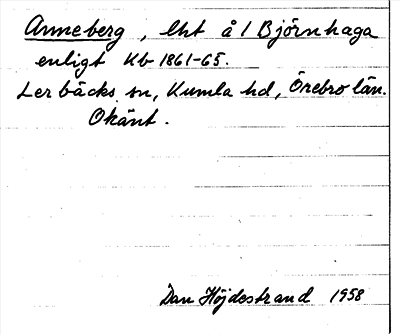 Anneberg, lht å 1 Björnhaga
enligt Kb 1861-65.
Lerbäcks sn, Kumla hd, Örebro län.
Okänt.
Dan Höjdestrand 1958